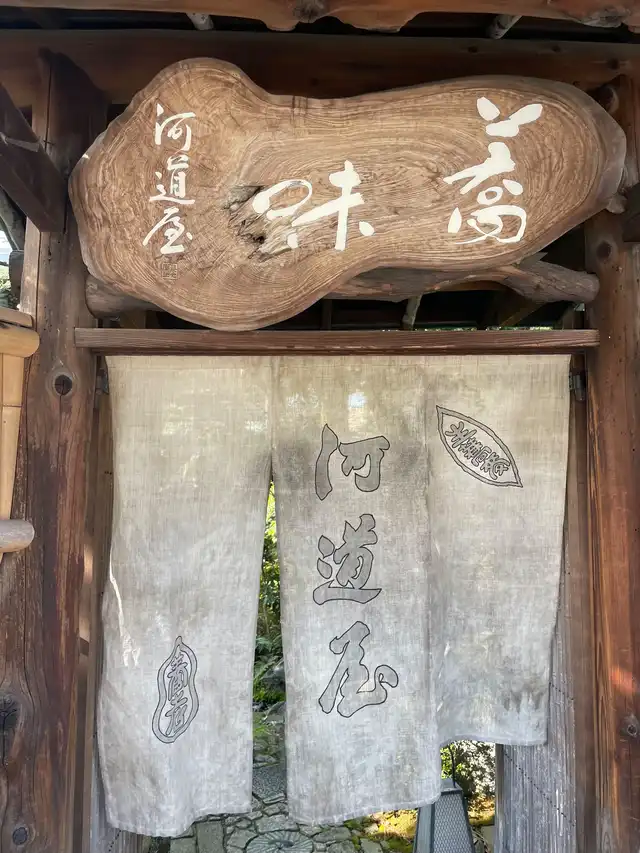 蕎味
河道屋
河道屋